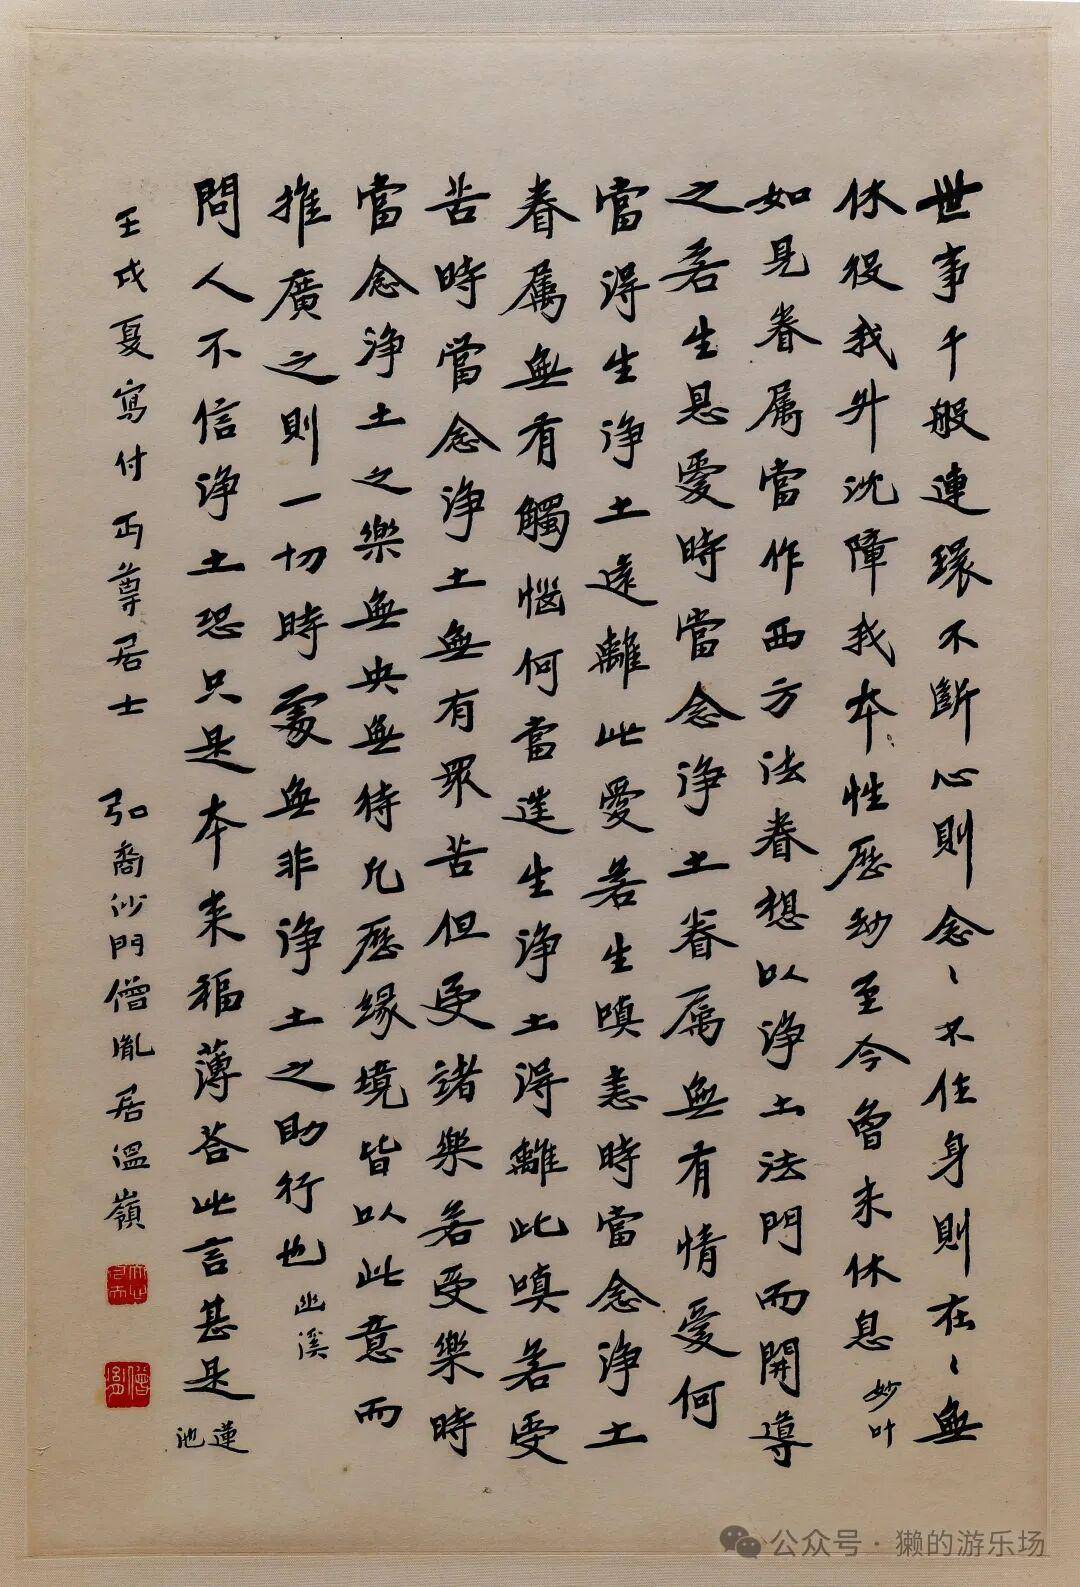 世事千般連環不斷心則念〻不住身則在〻無
休役我升沈障我本性歷劫至今曾未休息 妙叶
如見眷属當作西方法眷想以淨土法門而開導
之若生恩愛時當念淨土眷属無有情愛何
當得生淨土遠離此愛若生嗔恚時當念淨土
眷属無有觸惱何當遄生淨土得離此嗔若受
苦時當念淨土無有眾苦但受諸樂若受樂時
當念淨土之樂無央無待凡歷緣境皆以此意而
推廣之則一切時處無非淨土之助行也 幽溪
問人不信淨土恐只是本來福薄荅此言甚是 蓮池
壬戌夏寫付丏尊居士 弘裔沙門僧胤居溫嶺
公众号·獭的游乐场